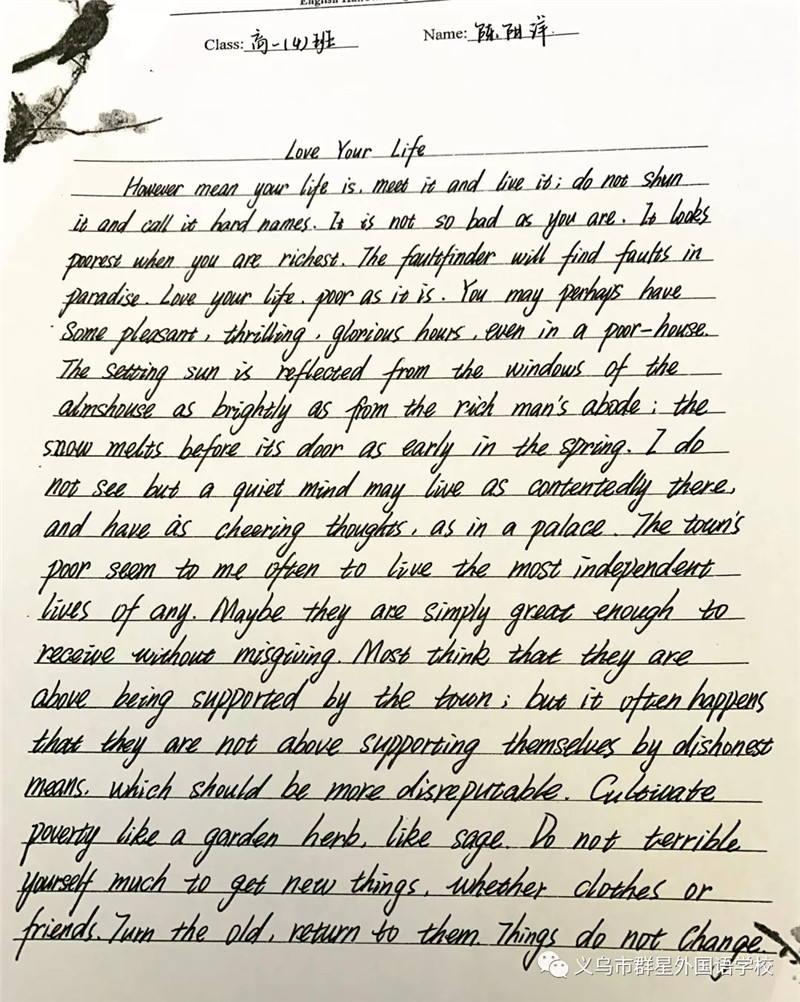 Class: 高一(4)班 Name: 陈阳洋
Love Your Life
However mean your life is, meet it and live it; do not shun
it and call it hard names. It is not so bad as you are. It looks
poorest when you are richest. The faultfinder will find faults in
paradise. Love your life, poor as it is. You may perhaps have
some pleasant, thrilling, glorious hours, even in a poor-house.
The setting sun is reflected from the windows of the
almshouse as brightly as from the rich man's abode; the
snow melts before its door as early in the spring. I do
not see but a quiet mind may live as contentedly there,
and have as cheering thoughts, as in a palace. The town's
poor seem to me often to live the most independent
lives of any. Maybe they are simply great enough to
receive without misgiving. Most think that they are
above being supported by the town; but it often happens
that they are not above supporting themselves by dishonest
means, which should be more disreputable. Cultivate
poverty like a garden herb, like sage. Do not terrible
yourself much to get new things, whether clothes or
friends. Turn the old, return to them. Things do not change.
义乌市群星外国语学校